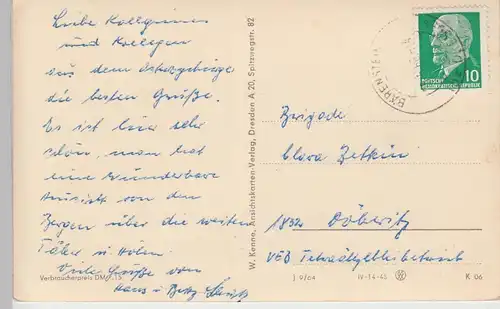 Liebe Kolleginnen
und Kollegen
aus dem Osterzgebirge
die besten Grüße.
Es ist hier sehr
schön, man hat
eine wunderbare
Aussicht von den
Bergen über die weiten
Täler u. Höhn.
Viele Grüße von
Hans u. Betty
Verbraucherpreis DM 0,15
W. Kenne, Ansichtskarten-Verlag, Dresden A 20, Spitzwegstr. 82
BÄRENSTEIN
10
DEUTSCHE
DEMOKRATISCHE REPUBLIK
Brigade
Clara Zetkin
1832 Döberitz
VEB Tetraäthylbleibetrieb
J 9/64 IV-14-45 K 06